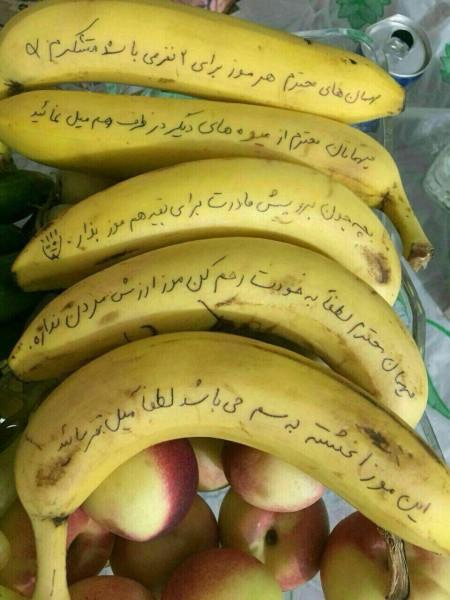 میهمان های محترم هر موز برای ۲ نفر می باشد متشکرم
میهمانان محترم از میوه های دیگر در ظرف هم میل نمائید
بچه جون برو پیش مادرت برای بقیه هم موز بذار.
میهمان محترم لطفاً به خودت رحم کن موز ارزش مردن نداره.
این موز آغشته به سم می باشد لطفا میل نفرمائید